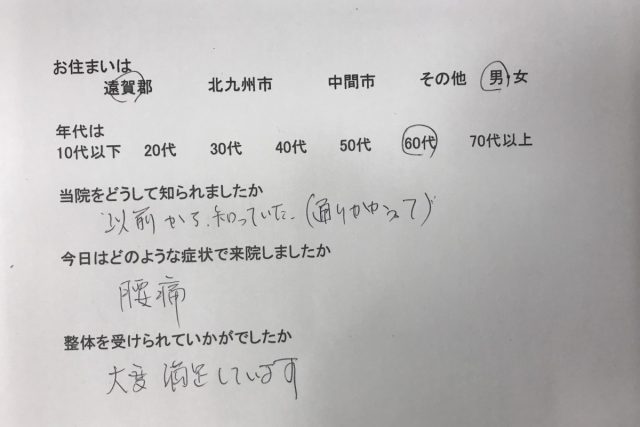 お住まいは
遠賀郡 北九州市 中間市 その他 男・女
年代は
10代以下 20代 30代 40代 50代 60代 70代以上
当院をどうして知られましたか
以前から、知っていた。(通りがかって)
今日はどのような症状で来院しましたか
腰痛
整体を受けられていかがでしたか
大変満足しています